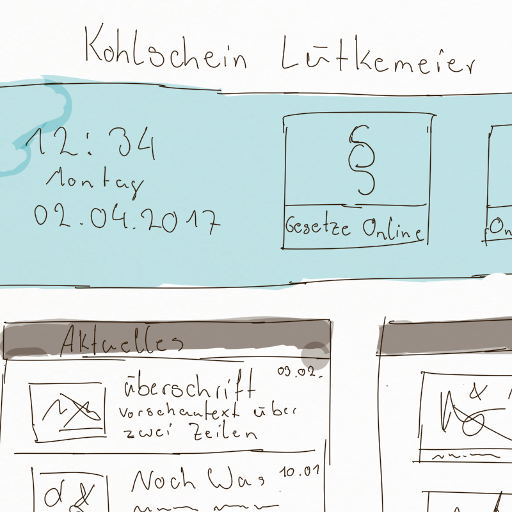 Kohlschein Lütkemeier
12:34
Montag
02.04.2017
§
Gesetze Online
On
Aktuelles
überschrift
09.02.
vorschautext über
zwei Zeilen
Noch Was
10.01